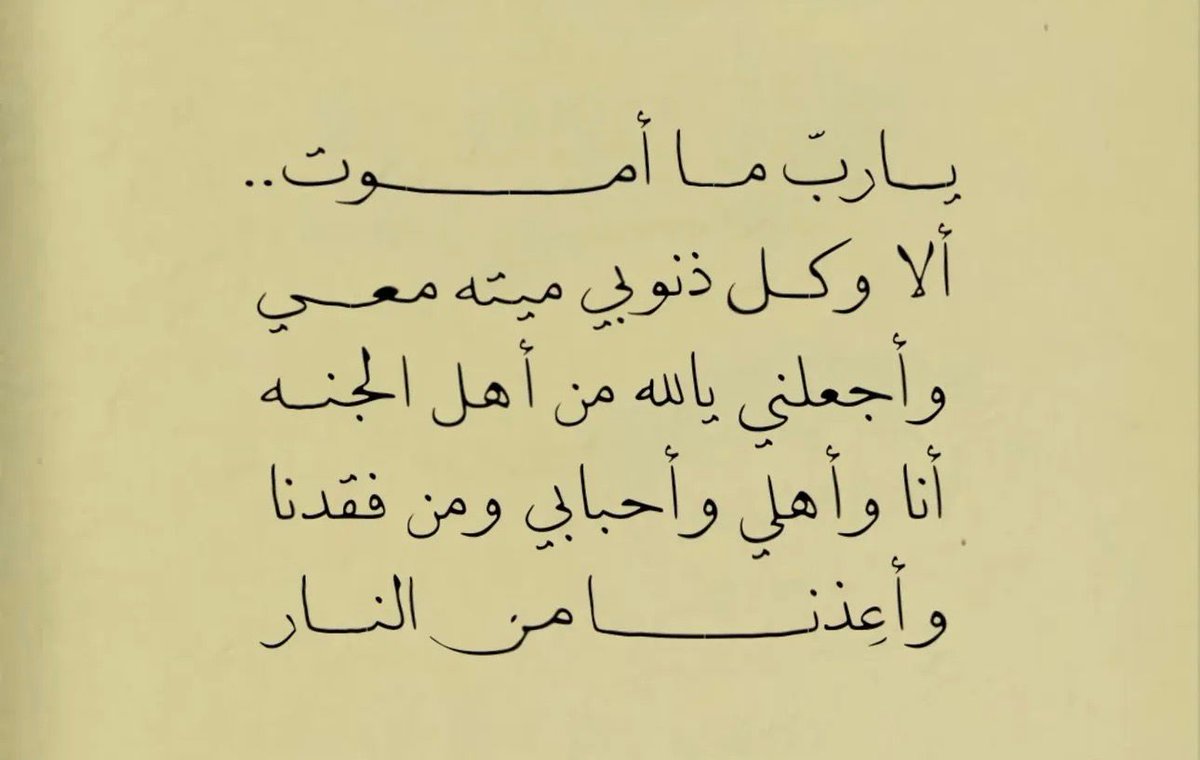 ياربّ ما أموت..
ألا وكل ذنوبي ميته معي
وأجعلني يالله من أهل الجنه
أنا وأهلي وأحبابي ومن فقدنا
وأعِذنا من النار